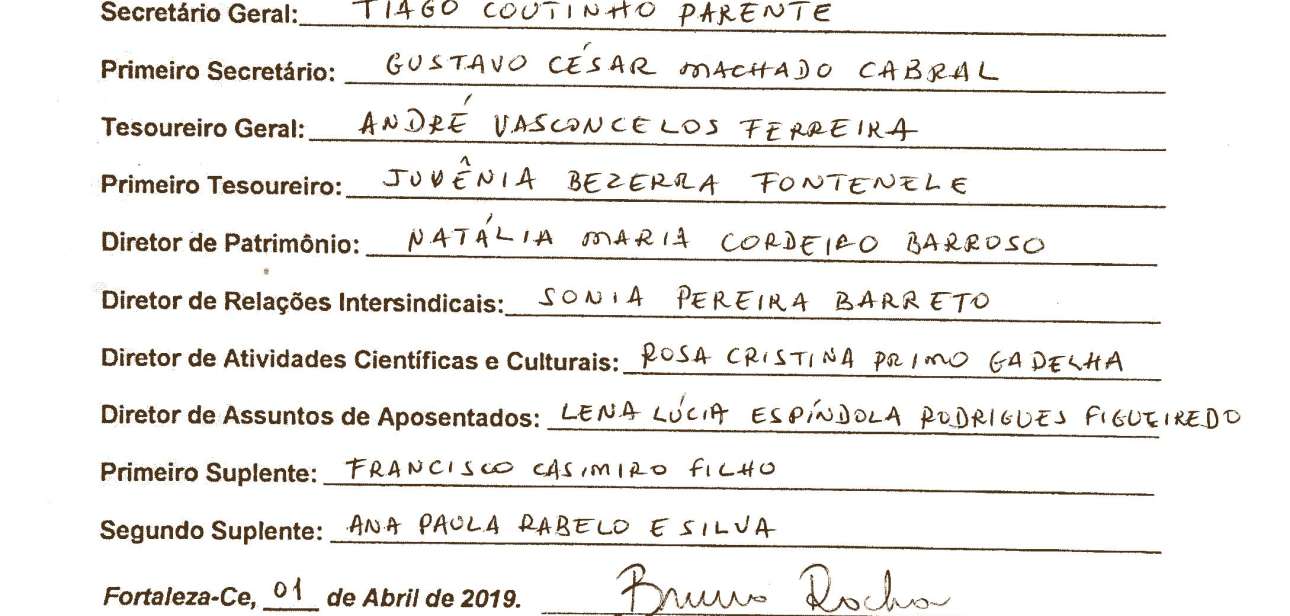 Secretário Geral: TIAGO COUTINHO PARENTE
Primeiro Secretário: GUSTAVO CÉSAR MACHADO CABRAL
Tesoureiro Geral: ANDRÉ VASCONCELOS FERREIRA
Primeiro Tesoureiro: JUVÊNIA BEZERRA FONTENELE
Diretor de Patrimônio: NATÁLIA MARIA CORDEIRO BARROSO
Diretor de Relações Intersindicais: SONIA PEREIRA BARRETO
Diretor de Atividades Científicas e Culturais: ROSA CRISTINA PRIMO GADELHA
Diretor de Assuntos de Aposentados: LENA LÚCIA ESPÍNDOLA RODRIGUES FIGUEIREDO
Primeiro Suplente: FRANCISCO CASIMIRO FILHO
Segundo Suplente: ANA PAULA RABELO E SILVA
Fortaleza-Ce, 01 de Abril de 2019. Bruno Rocha